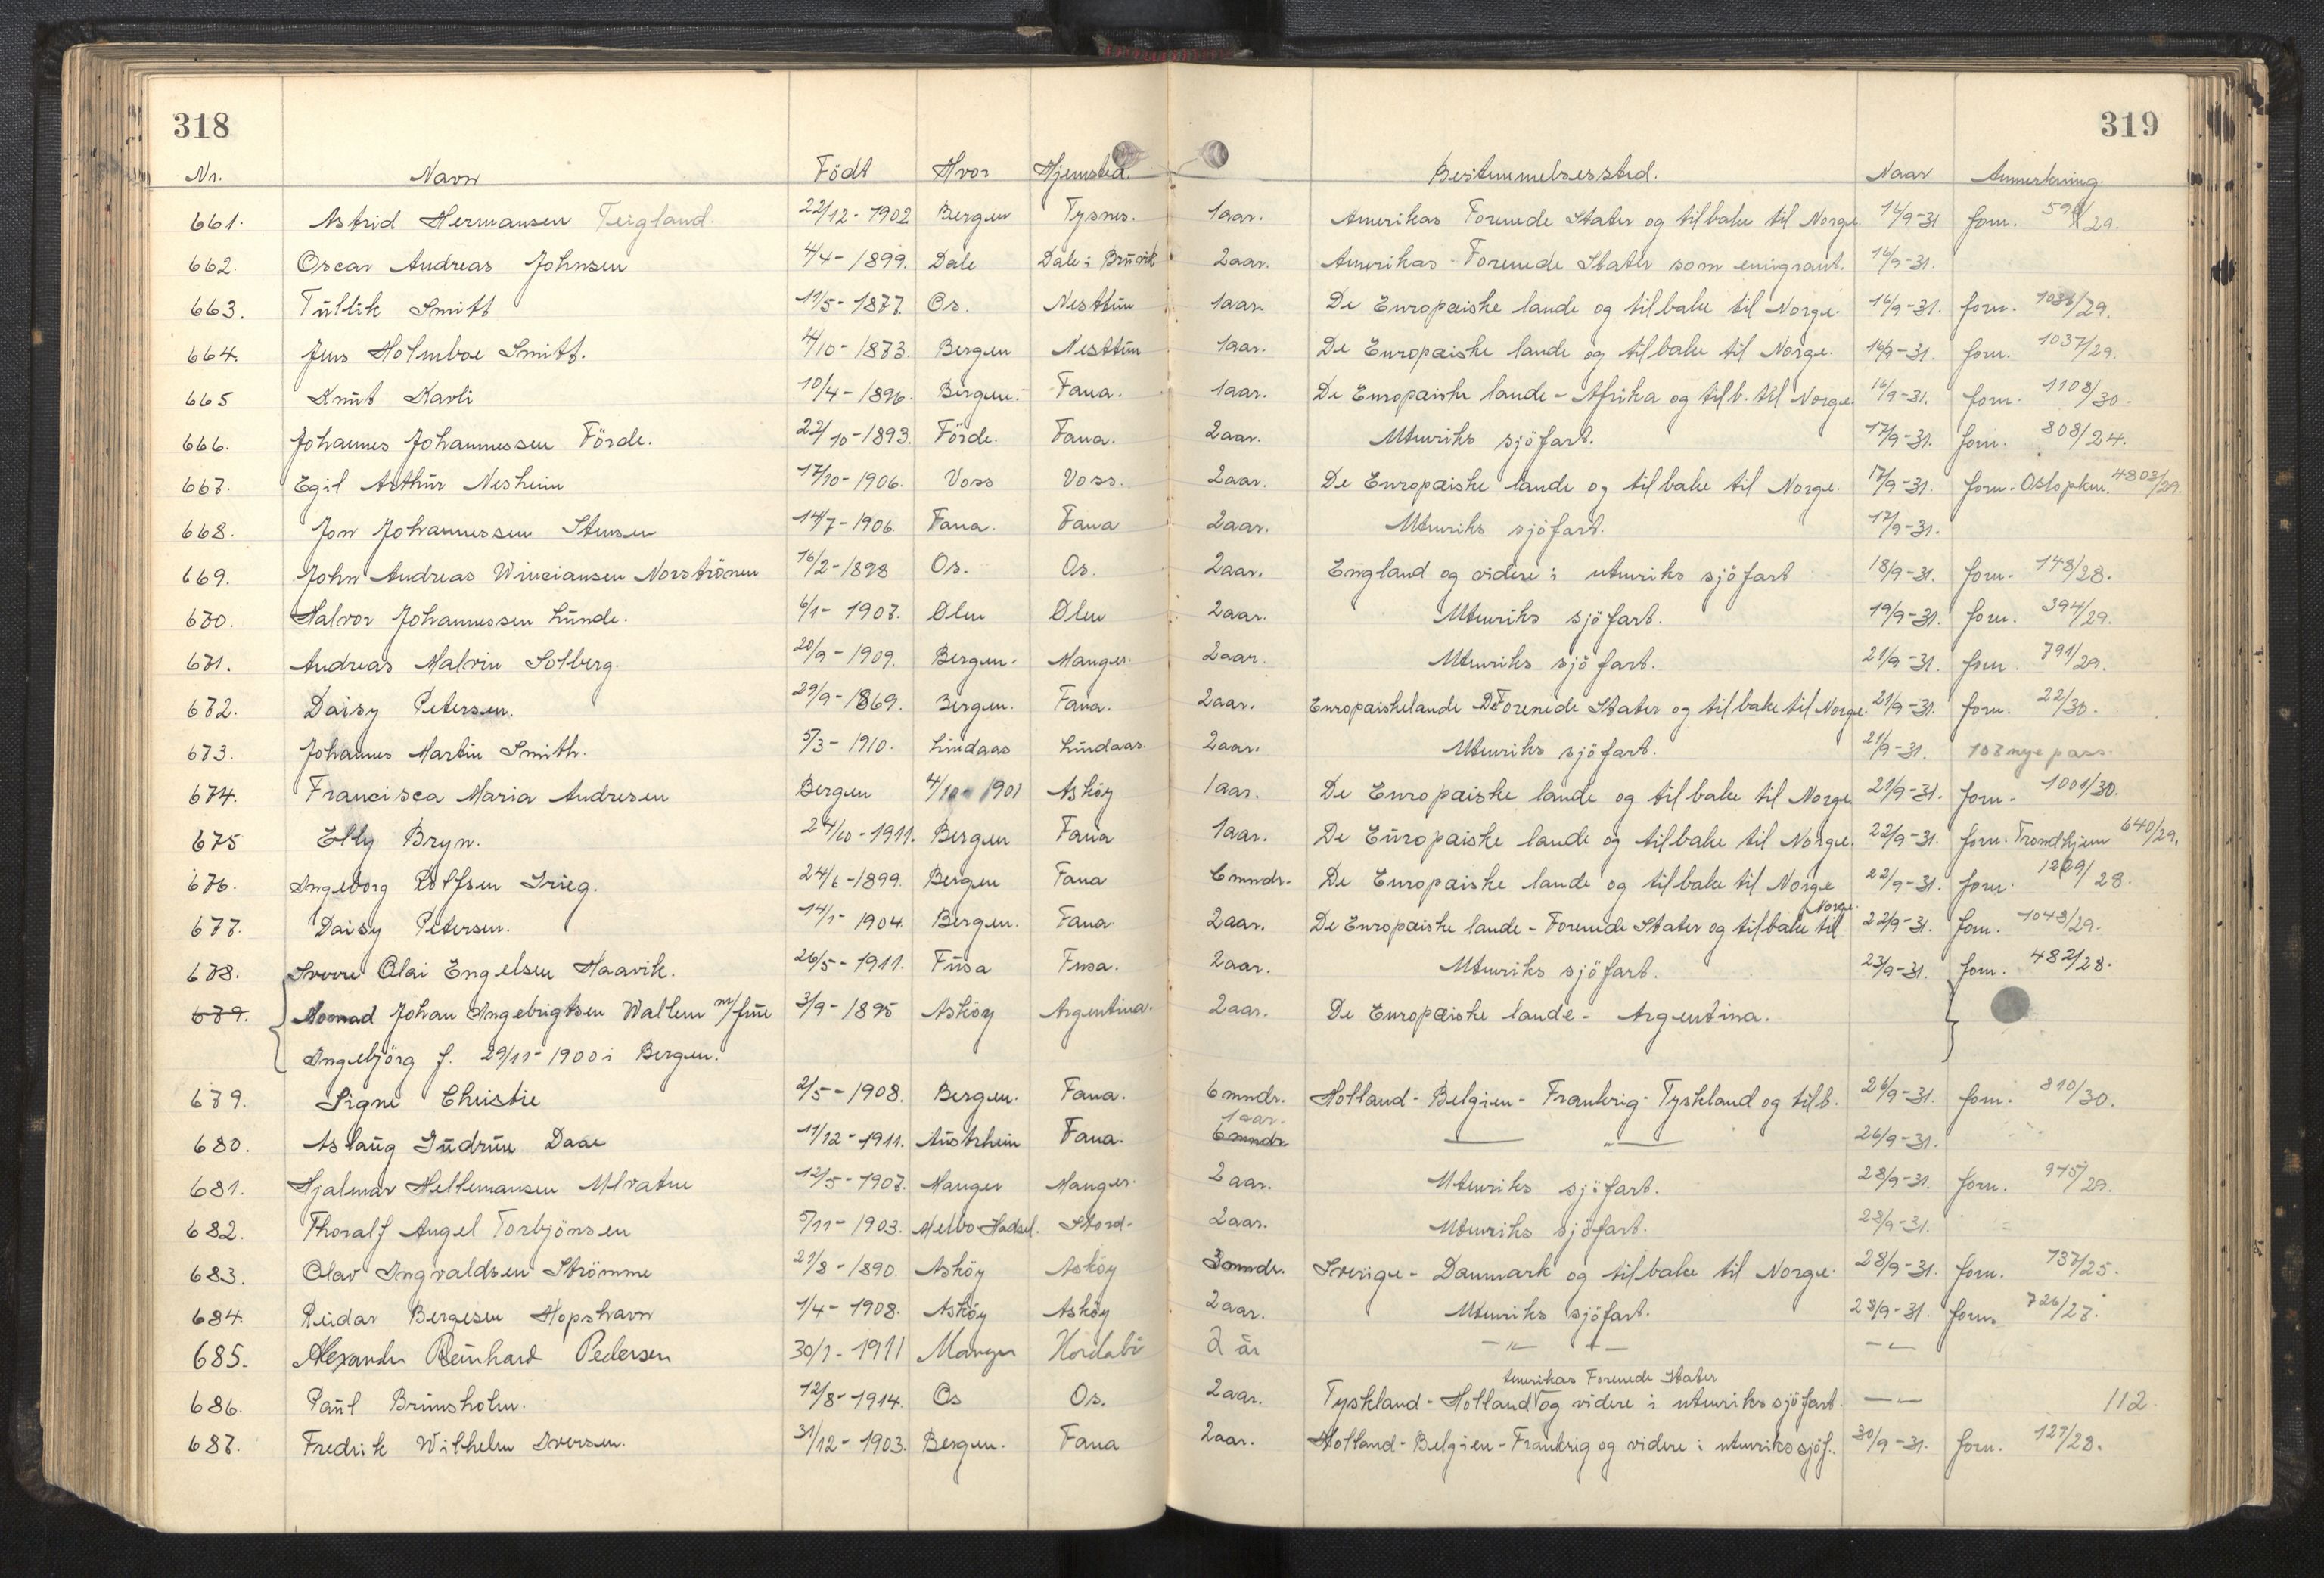 318
319
Nr. Navn Födt Hvor Hjemsted. Bestemmelsessted. Naar Anmerkning.
661. Astrid Hermansen Teigland. 22/12-1902 Bergen Tysnes. 1aar. Amerikas Forenede Stater og tilbake til Norge. 16/9-31 forn. /29.
662. Oscar Andreas Johnsen 4/4-1899. Dale Dale i Bruvik 2aar. Amerikas Forenede Stater som emigrant. 16/9-31.
663. Tullik Smitt 11/5-1877. Os. Nesttun 1aar. De Europæiske lande og tilbake til Norge. 16/9-31. forn. 1038/29.
664. Jens Holmboe Smitt. 4/10-1873. Bergen Nesttun 1aar. De Europæiske lande og tilbake til Norge. 16/9-31. forn. 1037/29.
665 Knut Kavli 10/4-1896. Bergen. Fana. 1aar. De Europæiske lande - Afrika og tilb. til Norge. 16/9-31. forn. 1108/30.
666. Johannes Johannessen Förde. 22/10-1893. Förde. Fana. 2aar. Utenriks sjöfart. 17/9-31. forn. 808/24.
667. Egil Arthur Nesheim 17/10-1906. Voss Voss. 2aar. De Europæiske lande og tilbake til Norge. 17/9-31. forn. Oslo pkm. 4803/29.
668. Jon Johannessen Stensen 14/7-1906. Fana. Fana 2aar. Utenriks sjöfart. 17/9-31.
669. John Andreas Winciansen Norströnen 16/2-1898 Os. Os. 2aar. England og videre i utenriks sjöfart 18/9-31. forn. 148/28.
670. Halvor Johannessen Lunde. 6/1-1907. Ölen Ölen 2aar. Utenriks sjöfart. 19/9-31. forn. 394/29.
671. Andreas Malvin Solberg. 20/9-1909. Bergen. Manger. 2aar. Utenriks sjöfart. 21/9-31. forn. 791/29.
672. Daisy Petersen. 29/9-1869. Bergen. Fana. 2aar. Europæiskelande De Forenede Stater og tilbake til Norge. 21/9-31. forn. 22/30.
673. Johannes Martin Smith. 5/3-1910. Lindaas Lindaas. 2aar. Utenriks sjöfart. 21/9-31. 107 nye pass.
674. Francisca Maria Andresen Bergen 4/10-1901 Asköy 1aar. De Europæiske lande og tilbake til Norge. 21/9-31. forn. 1001/30.
675 Elly Bryn. 24/10-1911. Bergen Fana 1aar. De Europæiske lande og tilbake til Norge. 22/9-31. forn. Trondhjem 640/29.
676. Ingeborg Rolfsen Grieg. 24/6-1899. Bergen Fana 6mndr. De Europæiske lande og tilbake til Norge 22/9-31. forn. 1229/28.
Norge.
677. Daisy Petersen. 14/1-1904. Bergen. Fana 2aar. De Europæiske lande - Forenede Stater og tilbake til 22/9-31. forn. 1048/29.
678. Sverre Olai Engelsen Haavik. 26/5-1911. Fusa Fusa. 2aar. Utenriks sjöfart. 23/9-31. forn. 482/28.
679. Johan Ingebrigtsen Wallem m/frue 3/9-1895 Asköy Argentina. 2aar. De Europæiske lande - Argentina.
Ingebjörg f. 29/11-1900 i Bergen.
679. Signe Christie 2/5-1908. Bergen. Fana. 6mndr. Holland - Belgien - Frankrig - Tyskland og tilb. 26/9-31. forn. 810/30.
1aar.
680. Aslaug Gudrun Daae 11/12-1911. Austrheim Fana. 6mndr — „ — 26/9-31.
681. Hjalmar Hellemansen Ulvatne 12/5-1907. Manger Manger. 2aar. Utenriks sjöfart. 28/9-31. forn. 945/29.
682. Thoralf Angel Torbjönsen 5/11-1903. Melbo Hadsel. Stord. 2aar. Utenriks sjöfart. 28/9-31.
683. Olav Ingvaldsen Strömme 21/8-1890. Asköy Asköy 3mndr. Sverige - Danmark og tilbake til Norge. 28/9-31. forn. 737/25.
684. Reidar Bergesen Hopshavn 1/4-1908. Asköy Asköy 2aar. Utenriks sjöfart. 28/9-31 forn. 726/27.
685. Alexander Reinhard Pedersen 30/1-1911 Manger Hordabö 2 år — „ — — „ —
Amerikas Forenede Stater
686. Paul Brimsholm. 12/8-1914. Os Os. 2aar. Tyskland - Holland og videre i utenriks sjöfart. — „ — 112
687. Fredrik Wilhelm Iversen. 31/12-1903. Bergen. Fana 2aar. Holland - Belgien - Frankrig og videre i utenriks sjöf. 30/9-31. forn. 127/28.